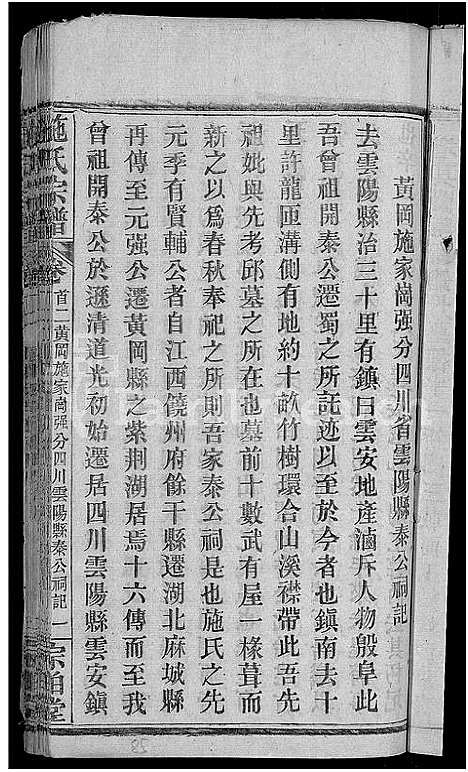 黃岡施家崗强分四川省雲陽縣秦公祠記
去雲陽縣治三十里有鎮曰雲安地產滷斥人物殷阜此
吾曾祖開秦公遷蜀之所託迹以至於今者也鎮南去十
里許龍匣溝側有地約十畝竹樹環合山溪襟帶此吾先
祖妣與先考邱墓之所在也墓前十數武有屋一椽葺而
新之以爲春秋奉祀之所則吾家秦公祠是也施氏之先
元季有賢輔公者自江西饒州府餘干縣遷湖北麻城縣
再傳至元强公遷黃岡縣之紫荆湖居焉十六傳而至我
曾祖開秦公於遜清道光初始遷居四川雲陽縣雲安鎮
施氏宗譜 卷首二 黃岡施家崗强分四川雲陽縣秦公祠記 一 宗伯堂